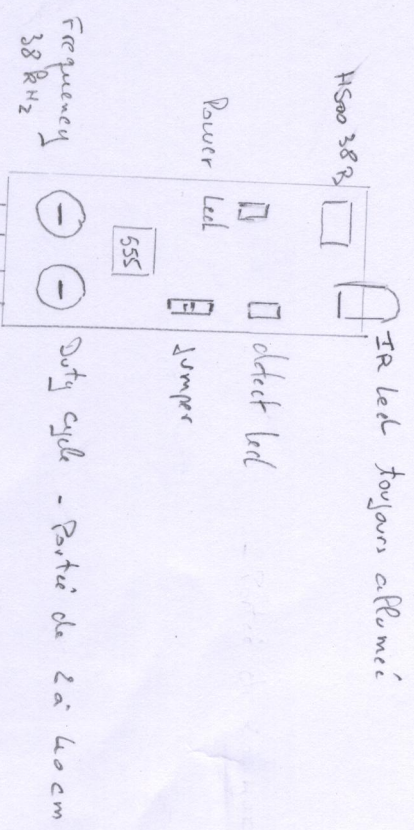 HS00 38B
IR Led toujours allumeé
Power Led
detect led
Jumper
555
Frequency
38 kHz
Duty cycle - Porteé de 2 à 40 cm